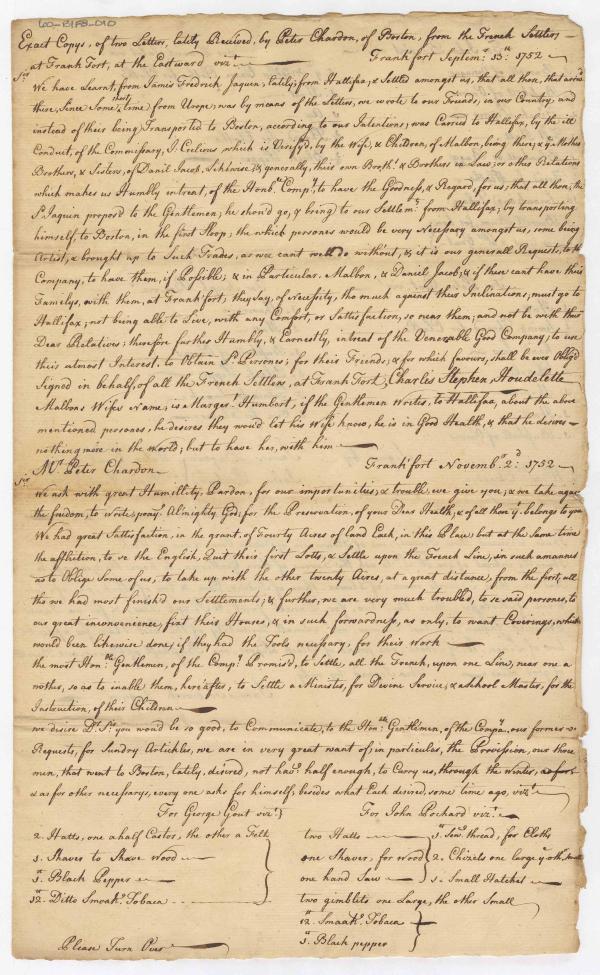 60-1MF8-010
Exact Copys, of two Letters, lately Received, by Peter Chardon, of Boston, from the French Settlers
at Frank Fort, at the Eastward vizt
Frankfort Septemr 13th 1752
Sir
We have Learnt, from Jamés Fredrick Jaquin, lately, from Hallifax, & Settled amongst us, that all those, that
there, Since Some short time, from Urope, was by means of the Letters, we wrote to our Friends, in our Country, and
instead of their being Transported to Boston, according to our Intentions, was Carried to Hallifax, by the ill
Conduct, of the Commissary, J. Celious, which is Verefy'd, by the Wife, & Children, of Malbon, being there; & ye Mother
Brothers, & Sisters, of Daniel Jacob, & generally, their own Brothrs & Brothers in Law; or other Relations
which makes us Humbly intreat, of the Honble Compy, to have the Godness, & Regard, for us, that all those, the
Sd Jaquin propos'd to the Gentlemen; he shou'd go, & bring to our Settlemt from Hallifax; by transporting
himself, to Boston, in the first Sloop; the which persons would be very Necessary amongst us, some being
Artist, & brought up to Such Trades, as wee cant well do without, & it is our generall Requests, to the
Company, to have them, if Possible; & in Particular. Malbon, & Daniel Jacob; & if these cant have their
Famelys, with them, at Frankfort; they Say, of Necessity, tho much against their Inclinations, must go to
Hallifax; not being able to Live, with any Comfort, or Sattisfaction, so near them; and not be with their
Dear Relations; therefore further Humbly, & Earnestly, intreat of the Venerable Good Company; to use
their utmost Interest, to Obtain Sd Persones; for their Friends; & for which favours, shall be ever Oblig'd
Signed in behalf of all the French Settlers, at Frank Fort, Charles Stephen Houdelette
Malbons Wifes Name, is Margt Humbart, if the Gentlemen Writes, to Hallifax, about the above
mentioned persones, he desires they would let his Wife know, he is in Good Health, & that he desires
nothing more in the world; but to have her, with him
Mr Peter Chardon
Frankfort Novembr 2d 1752
Sir
We ask with great Humillity, Pardon, for our importunities; & trouble, we give you; & we take again
the freidom, to write, prayg Almighty God; for the Preservation, of your Dear Health, & of all those yt belongs to you
We had great Sattisfaction, in the grant, of Fourty Acres of land Each, in this Place but at the Same time
the affliction, to se the English, Quit their first Lotts, & Settle upon the French Line, in such amanner
as to Oblige Some of us, to take up with the other twenty Acres, at a great distance, from the first; all
tho we had most finish'd our Settlements; & further, we are very much troubled, to se said persones, to
our great inconvenience, fixt their Houses, & in such forwardness, as only, to want Coverings, which
would been likewise done; if they had the Tools necessary, for their work
the most Honble Gentlemen, of the Compy Promis'd, to Settle all the French, upon one Line, near one a
nother, so as to inable them, hereafter, to Settle a Minister, for Devine Service, & a School Master, for the
Instruction, of their Children
we disire Dr Sir you wou'd be so good, to Communicate, to the Honble Gentlemen, of the Compa, our former
Requests, for Sundry Artickles, we are in very great want of; in particular, the Provission, our three
men, that went to Boston, lately, disired, not havg half enough, to Carry us, through the Winter,
& as for other necessarys, every one asks for himself; besides what Each disired, some time ago, vizt
For George Gout vizt
2. Hatts, one a half Castor, the other a Felt
1. Shaver to Shave Wood
1. Black Pepper
12. Ditto Smoakd Tobaca
For John Pochard vizt
two Hatts
one Shaver, for wood
one hand Saw
two gimblets one Large, the other Small
12. Smoakd Tobaca
1. Black pepper
1. Sewg thread, for Cloths
2. Chizels one large ye othr Small
1. Small Hatchet
Please Turn Over